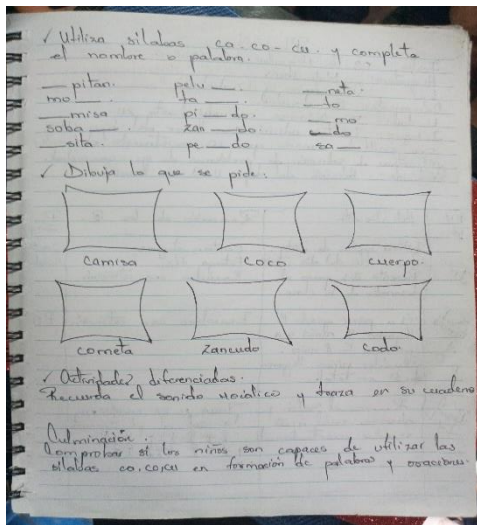 ✓ Utiliza sílabas ca - co - cu. y completa
el nombre o palabra.
__ pitán. pelu __. __ reta.
mo __. ta __. __ to
__ misa pi __ do. __ mo.
soba __. zan __ do __ do
__ sita. pe __ do sa __
✓ Dibuja lo que se pide:
camisa coco cuerpo.
cometa zancudo codo.
✓ Actividades diferenciadas.
Recuerda el sonido y traza en su cuaderno
Culminación:
Comprobar si los niños son capaces de utilizar las
sílabas ca, co, cu en formación de palabras y oraciones.